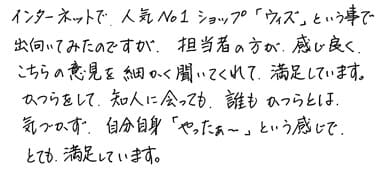 インターネットで、人気No1ショップ「ウィズ」という事で
出向いてみたのですが、担当者の方が、感じ良く、
こちらの意見を細かく聞いてくれて、満足しています。
かつらをして、知人に会っても、誰もかつらとは、
気づかず、自分自身「やったぁ〜」という感じで、
とても、満足しています。